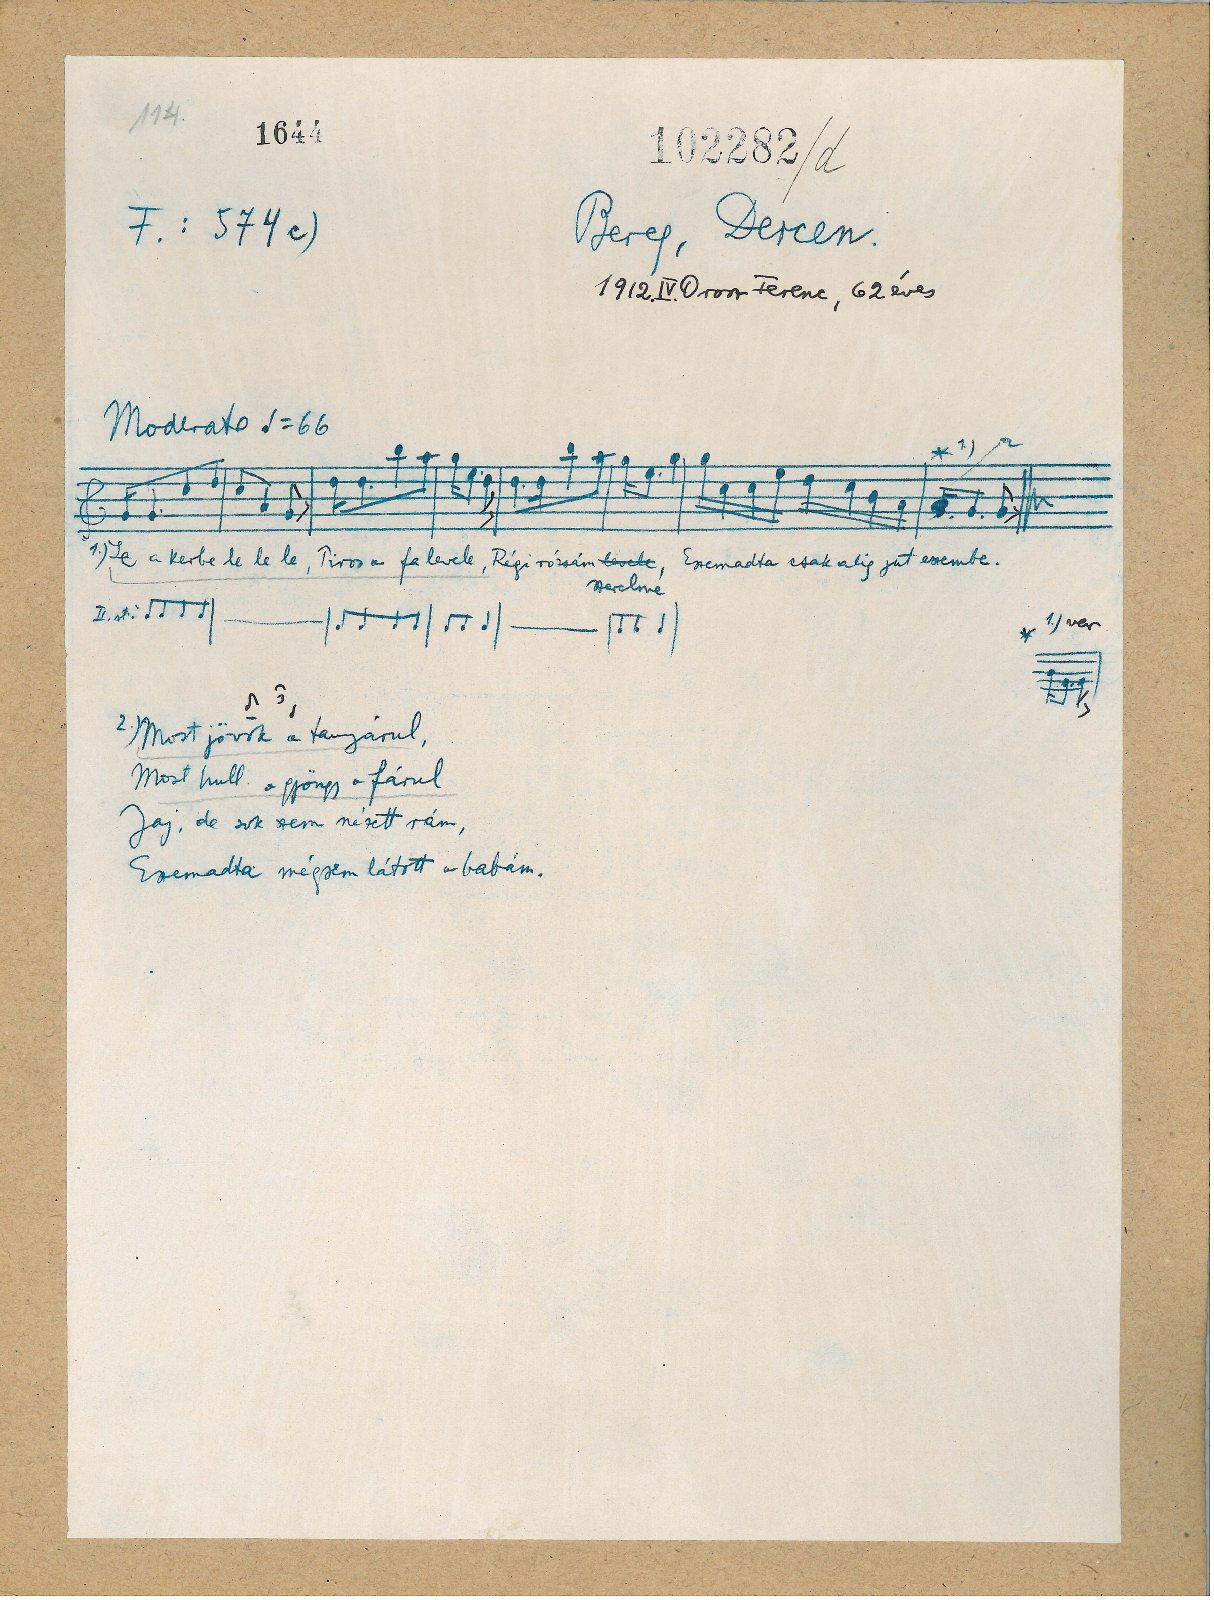 114.
1644
102282/d
F.: 574 c)
Bereg, Dercen.
1912.IV. Oros Ferenc, 62 éves
Moderato ♩=66
* 1.)
1.) Ze a kerbe le le le, Piros a fa levele, Régi rózsám levele, Eszemadta csak alig jut eszembe.
szerelme
II. st:
* 1.) var
3
2.) Most jövök a tanyárul,
Most hull a gyöngy a fárul
Jaj, de sok szem nézett rám,
Eszemadta mégsem látott a babám.